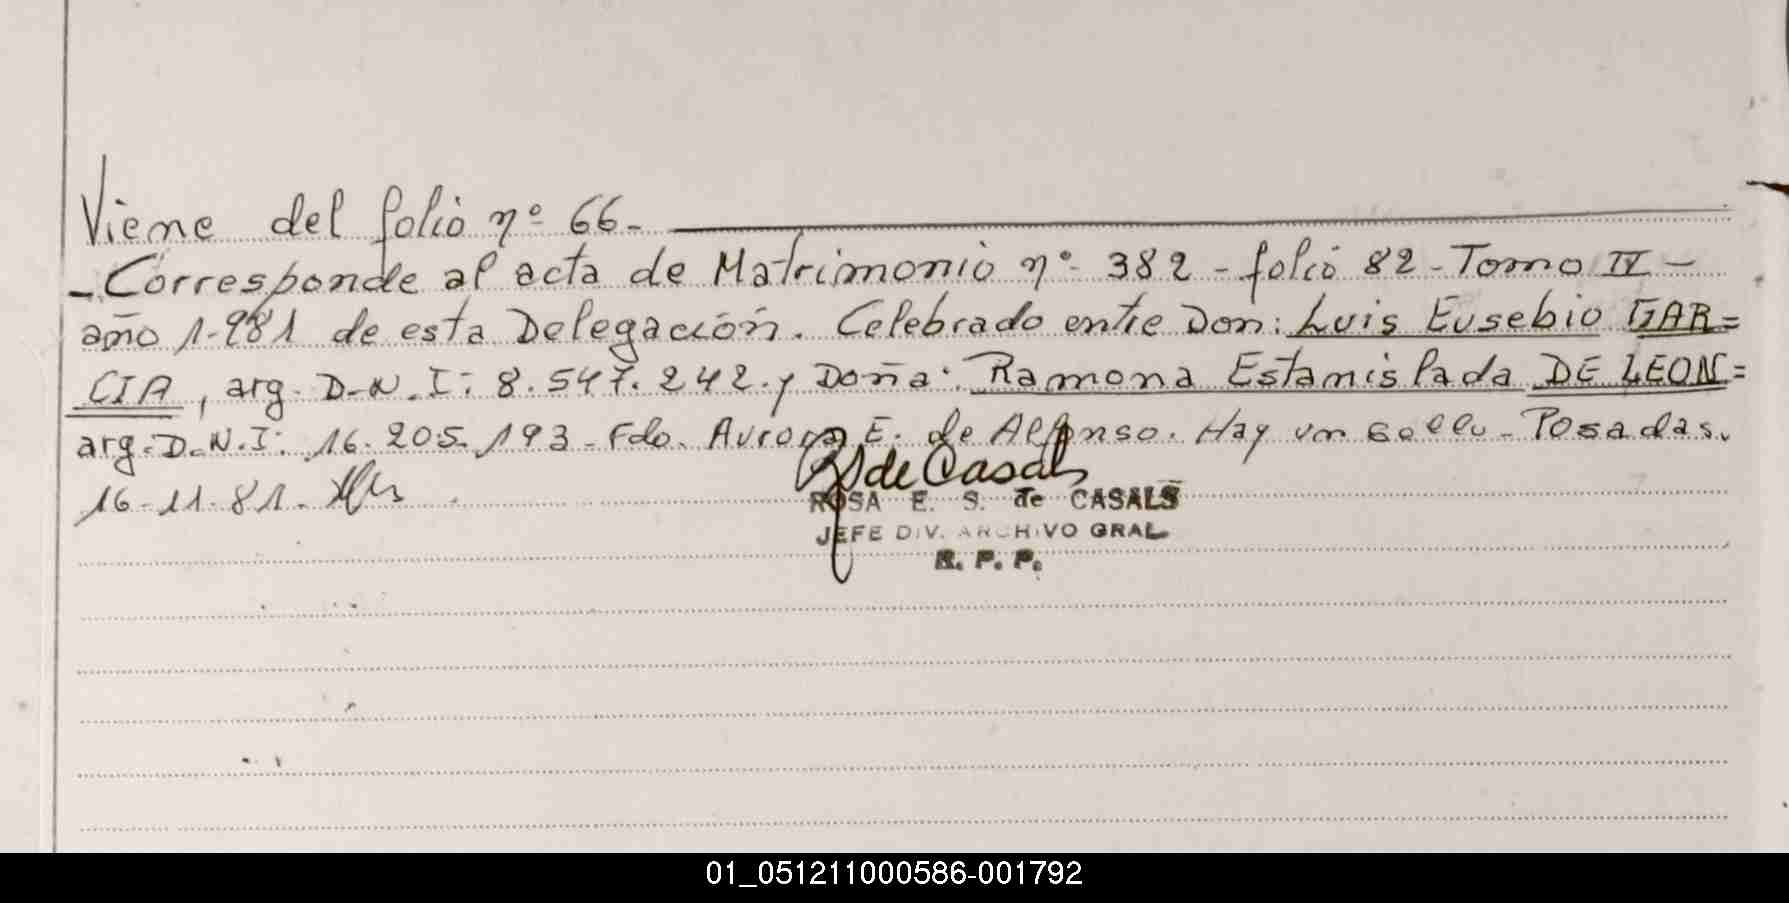 Viene del folio nº 66.-
- Corresponde al acta de Matrimonio nº 382 - folio 82 - Tomo IV -
año 1.981 de esta Delegación. Celebrado entre Don: Luis Eusebio GAR=
CIA, arg. D.N.I: 8.547.242. y Doña: Ramona Estanislada DE LEON=
arg. D.N.I: 16.205.193 - Fdo. Aurora E. de Alfonso. Hay un sello - Posadas.
16-11-81.
de Casals
ROSA E. S. de CASALS
JEFE DIV. ARCHIVO GRAL.
R. P. P.
01_051211000586-001792